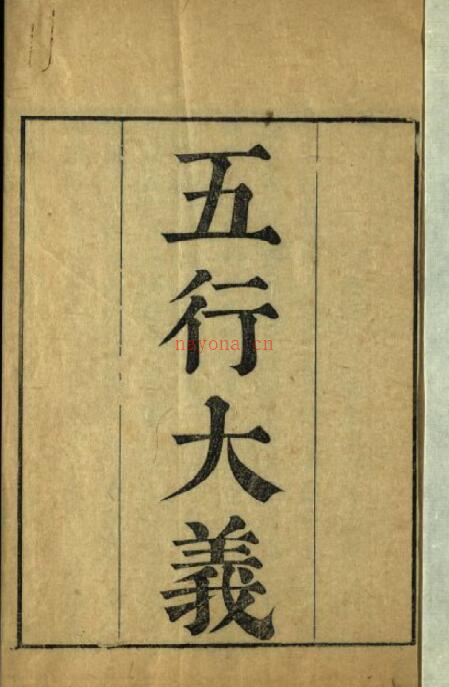 五行大義
nayona.cn